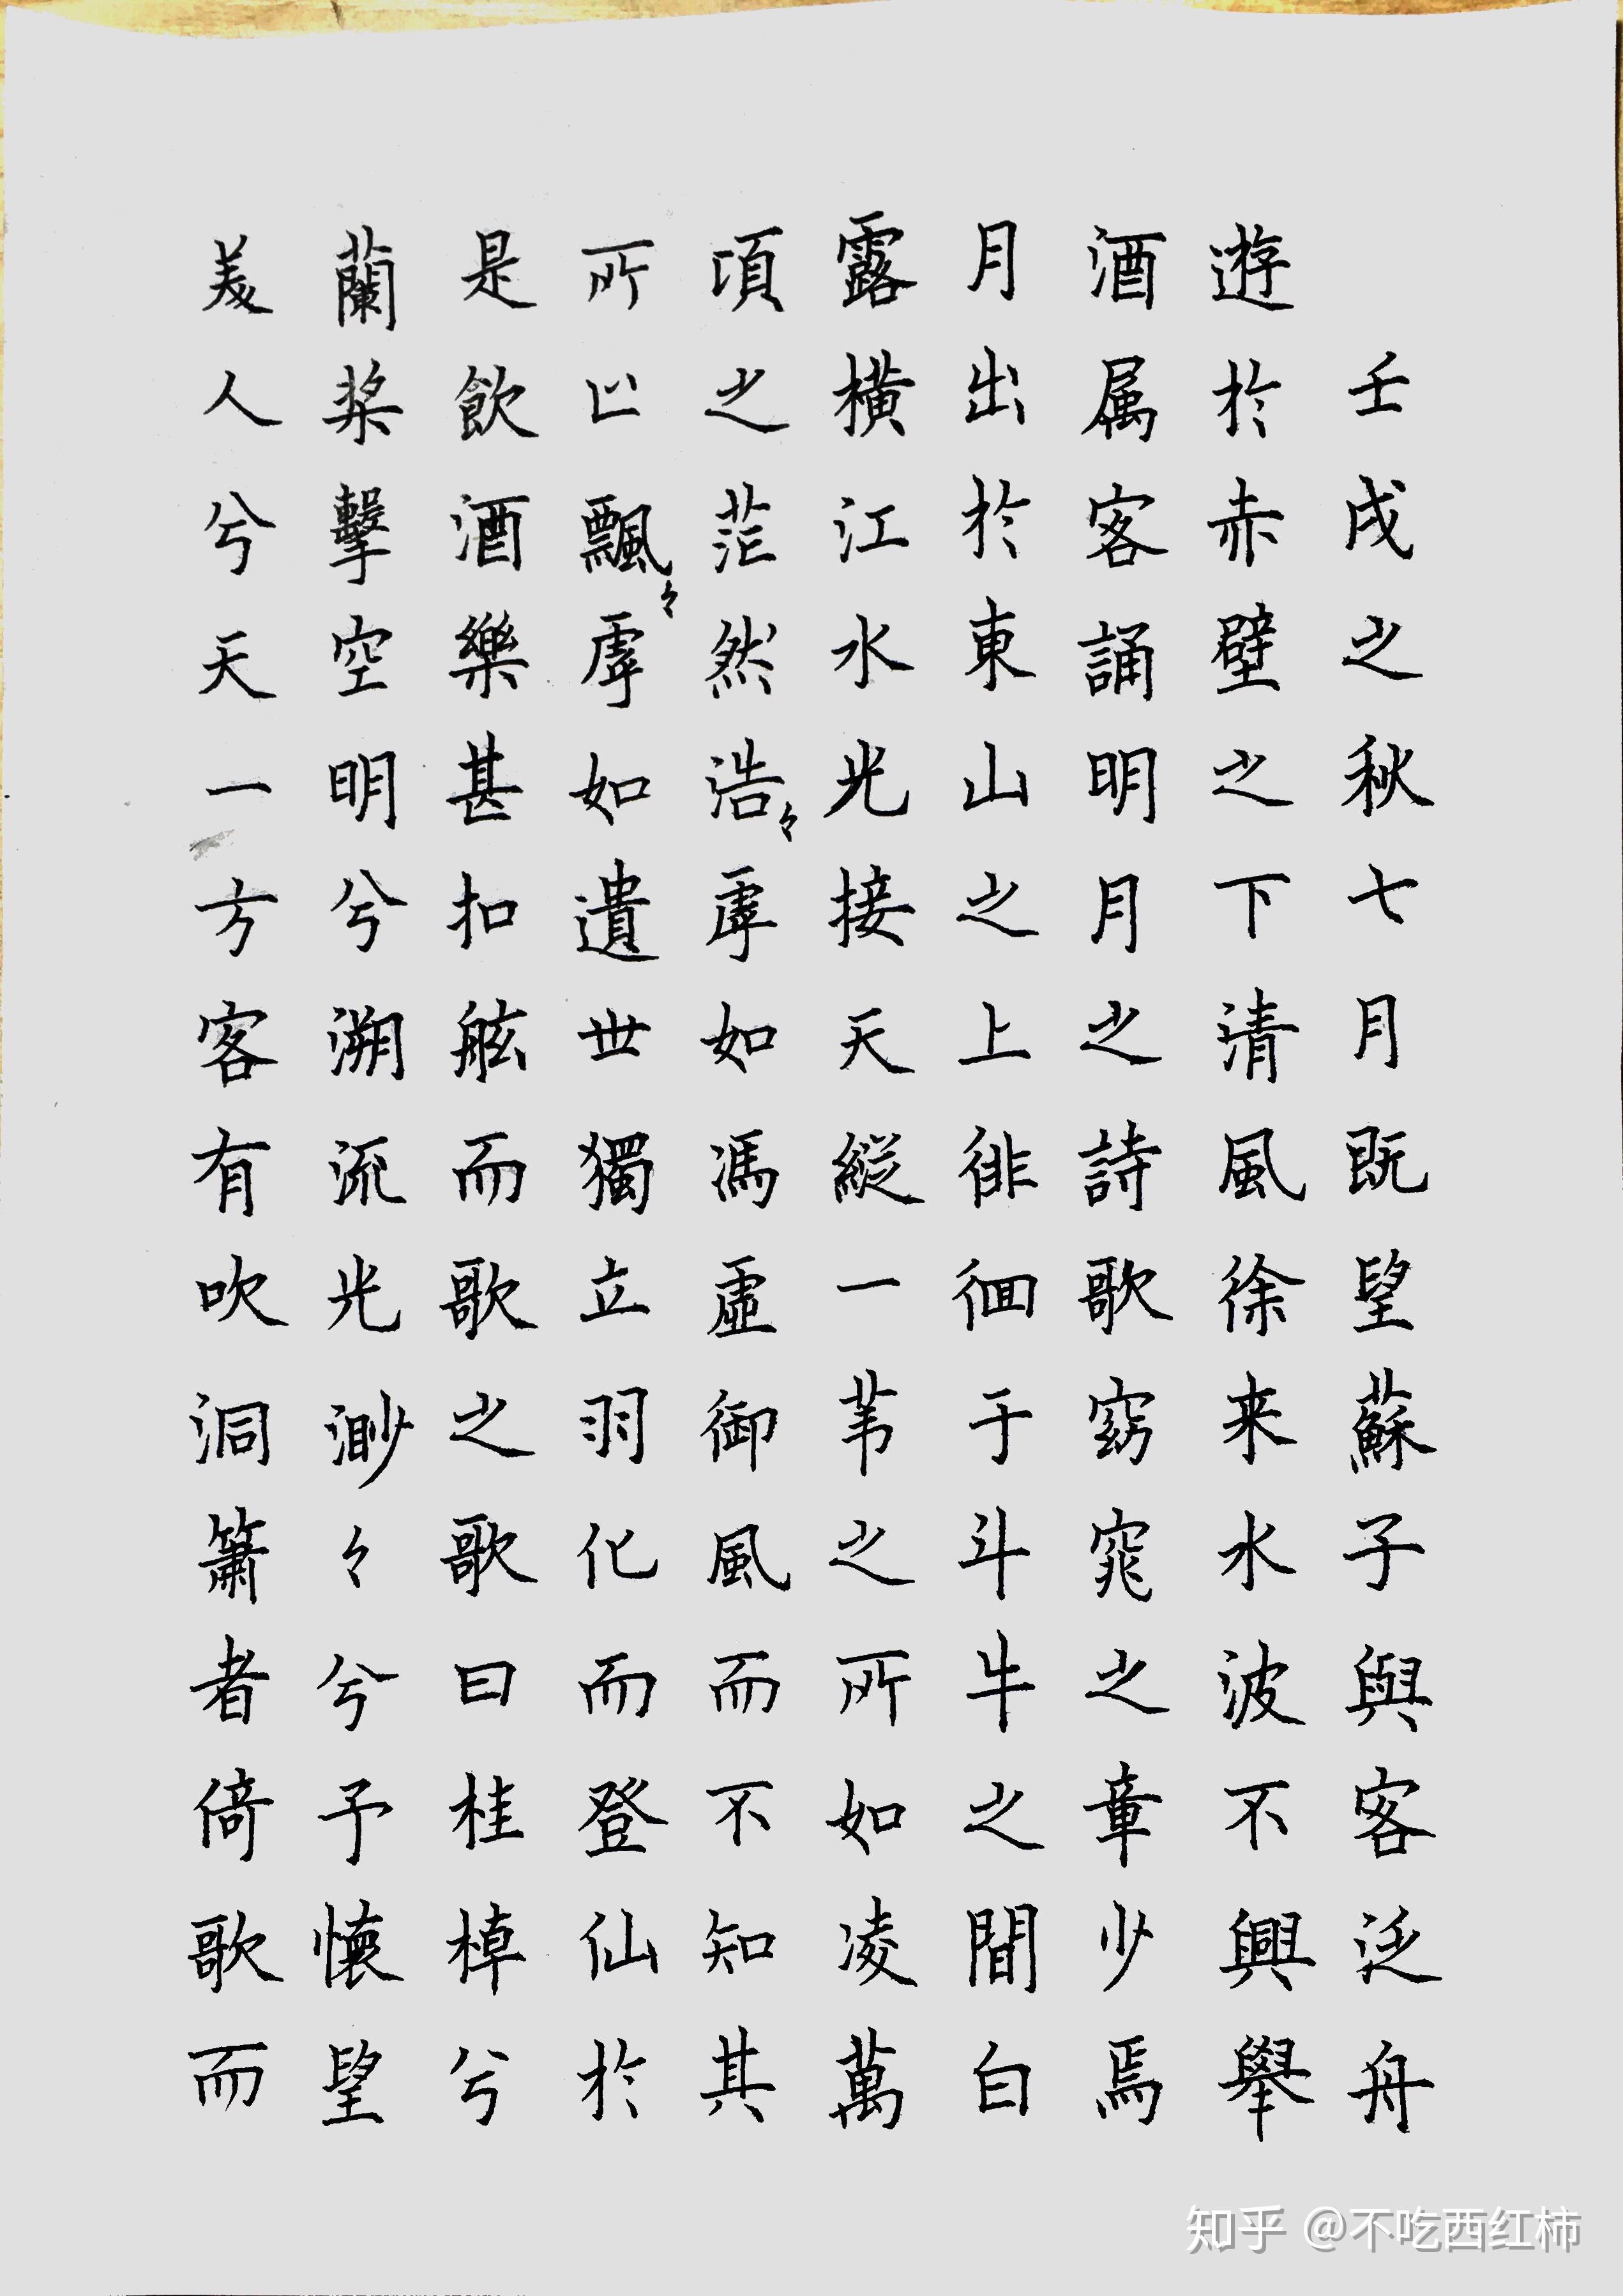 壬戌之秋七月既望蘇子與客泛舟
遊於赤壁之下清風徐来水波不興舉
酒属客誦明月之詩歌窈窕之章少焉
月出於東山之上徘徊于斗牛之間白
露橫江水光接天縱一苇之所如凌萬
頃之茫然浩々虖如馮虛御風而不知其
所止飄々虖如遺世獨立羽化而登仙於
是飲酒樂甚扣舷而歌之歌曰桂棹兮
蘭桨擊空明兮溯流光渺々兮予懷望
美人兮天一方客有吹洞簫者倚歌而
知乎 @不吃西红柿